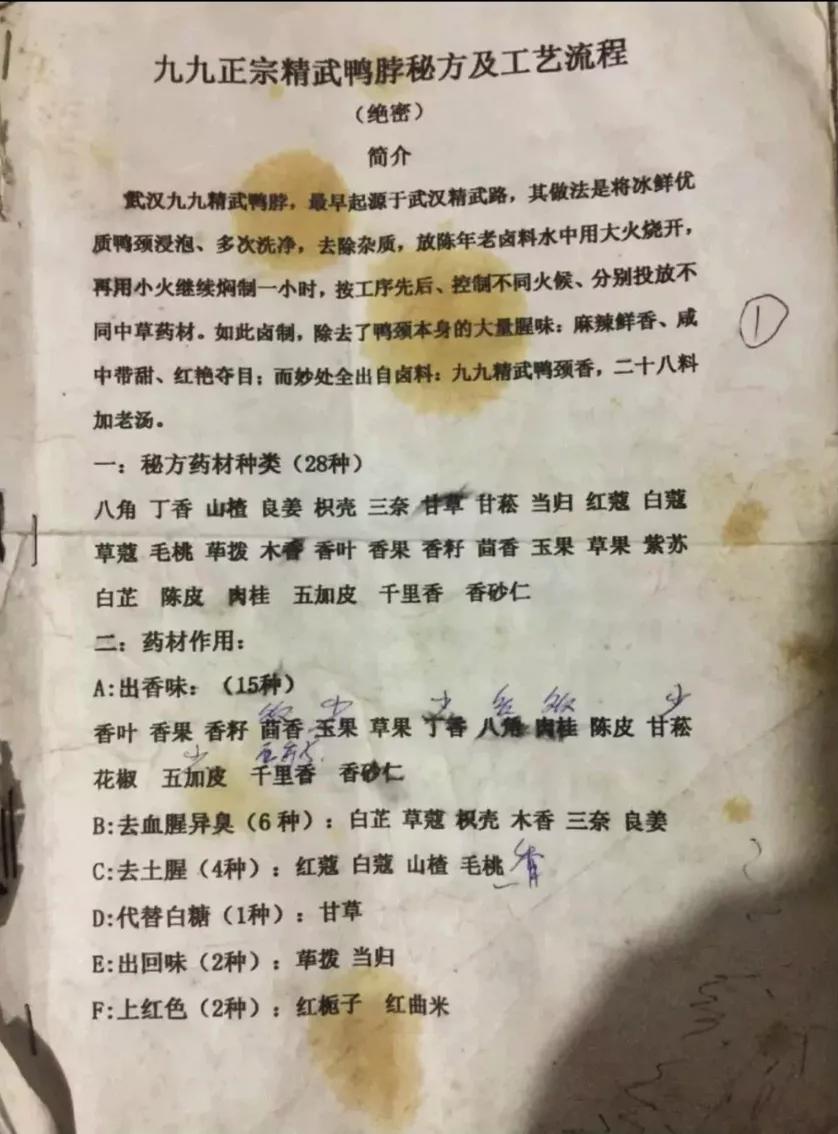 九九正宗精武鸭脖秘方及工艺流程
（绝密）
简介
武汉九九精武鸭脖，最早起源于武汉精武路，其做法是将冰鲜优
质鸭颈浸泡、多次洗净，去除杂质，放陈年老卤料水中用大火烧开，
再用小火继续焖制一小时，按工序先后、控制不同火候、分别投放不
同中草药材。如此卤制，除去了鸭颈本身的大量腥味：麻辣鲜香、咸
中带甜、红艳夺目；而妙处全出自卤料：九九精武鸭颈香，二十八料
加老汤。
①
一：秘方药材种类（28种）
八角 丁香 山楂 良姜 枳壳 三奈 甘草 甘菘 当归 红蔻 白蔻
草蔻 毛桃 荜拨 木香 香叶 香果 香籽 茴香 玉果 草果 紫苏
白芷 陈皮 肉桂 五加皮 千里香 香砂仁
二：药材作用：
A:出香味：（15种）
香叶 香果 香籽 茴香 玉果 草果 丁香 八角 肉桂 陈皮 甘菘
花椒 五加皮 千里香 香砂仁
B:去血腥异臭（6种）：白芷 草蔻 枳壳 木香 三奈 良姜
C:去土腥（4种）：红蔻 白蔻 山楂 毛桃
D:代替白糖（1种）：甘草
E:出回味（2种）：荜拨 当归
F:上红色（2种）：红栀子 红曲米